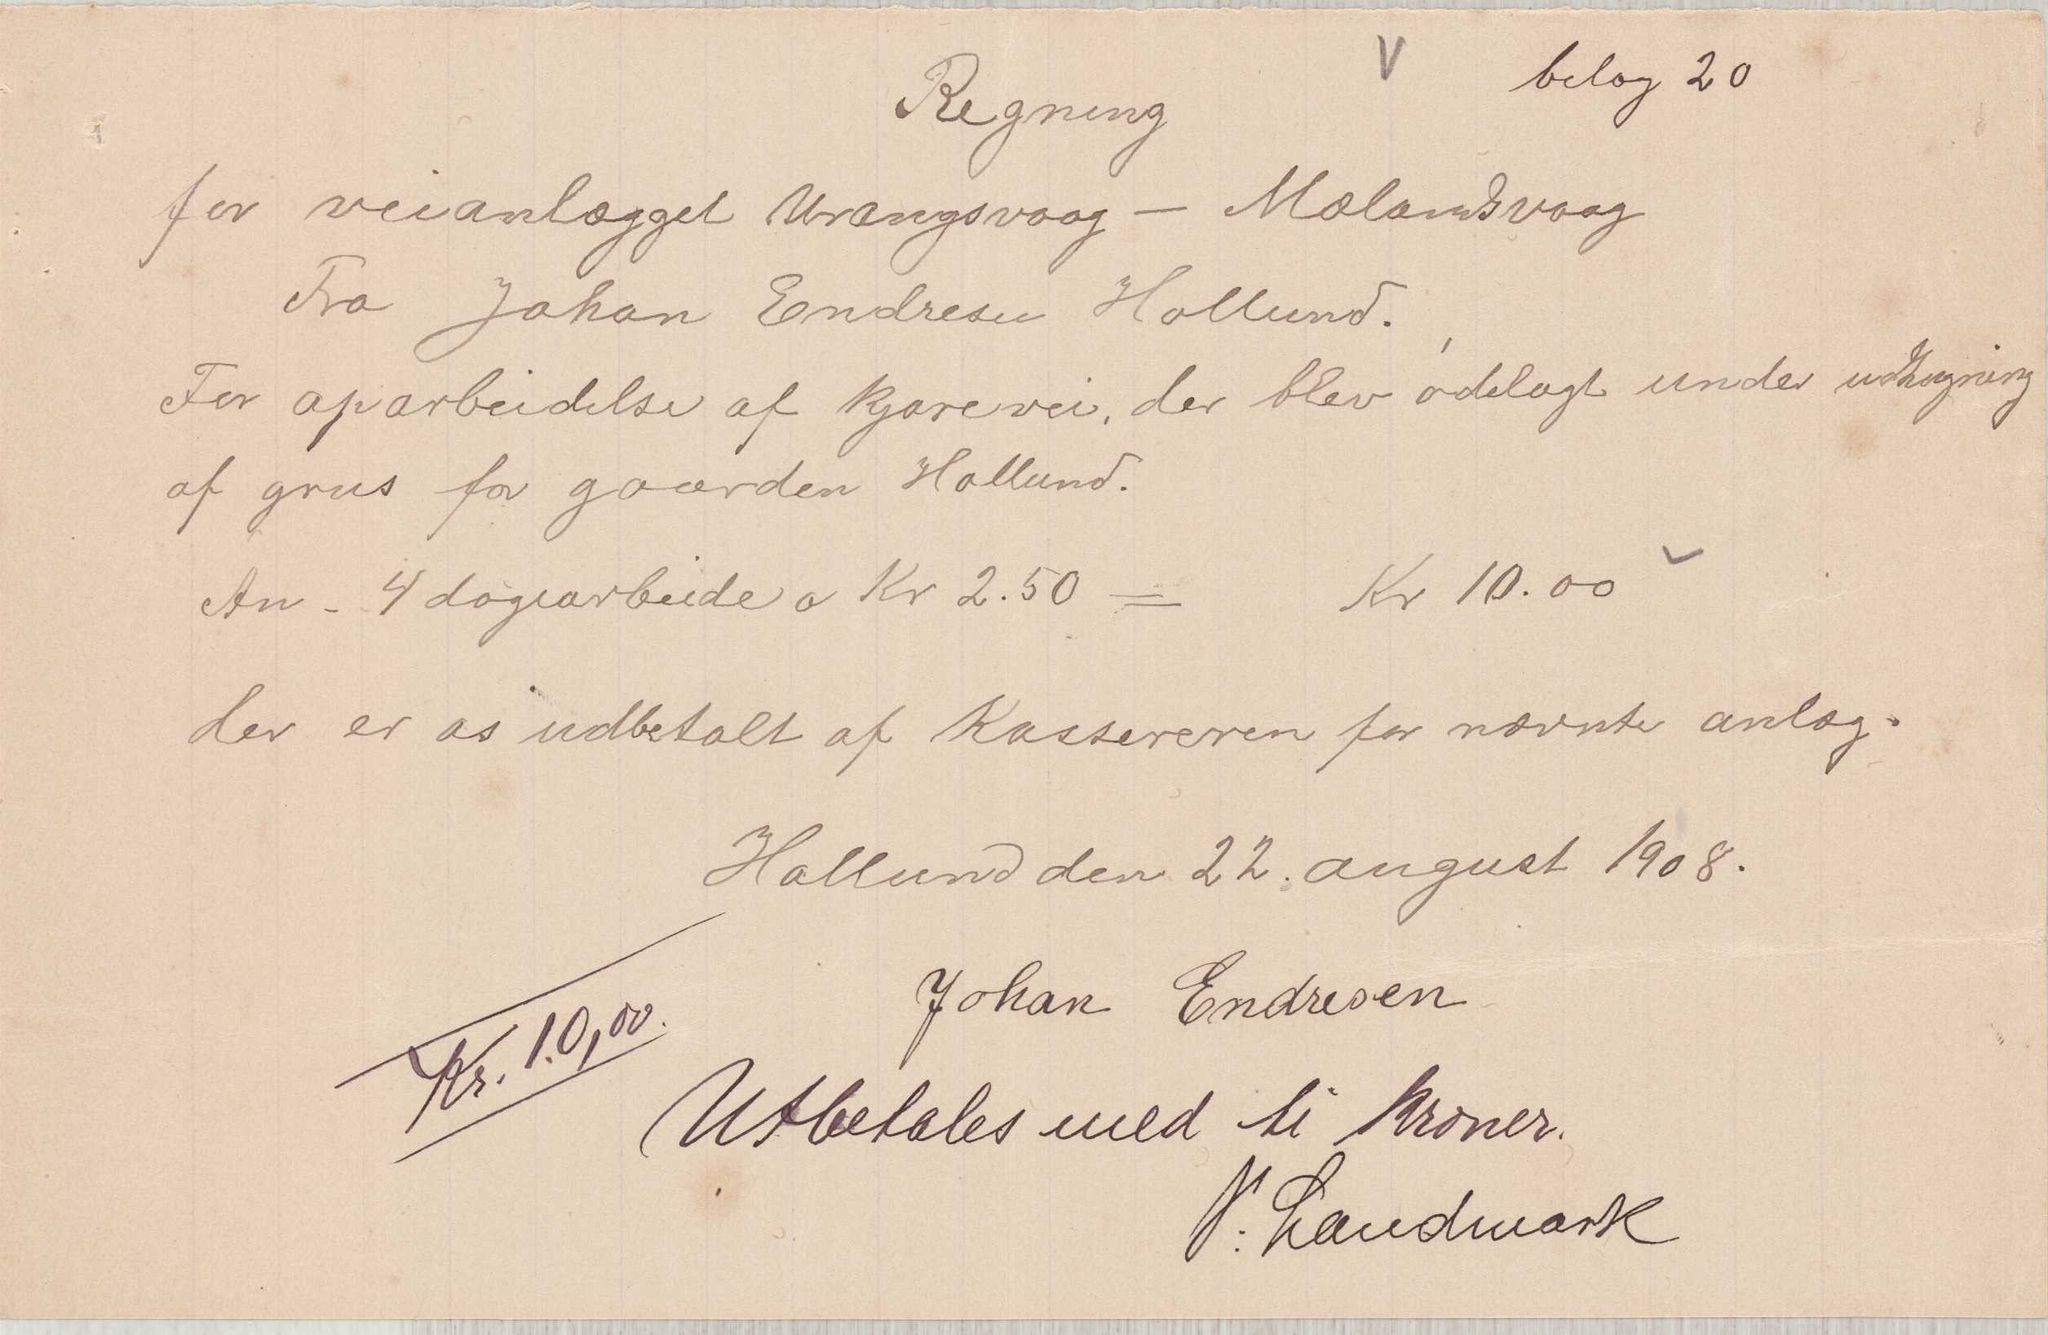 V belag 20
Regning
for veianlægget Urangsvaag - Mælandsvaag
Fra Johan Endresen Hollund.
For oparbeidelse af kjørevei, der blev ødelagt under udkjøring
af grus for gaarden Hollund.
An - 4 dagearbeide a Kr 2.50 = Kr 10.00
der er os udbetalt af Kassereren for nævnte anlæg.
Hollund den 22. august 1908.
Johan Endresen
Kr. 10,00.
Utbetales med ti kroner.
N. Landmark